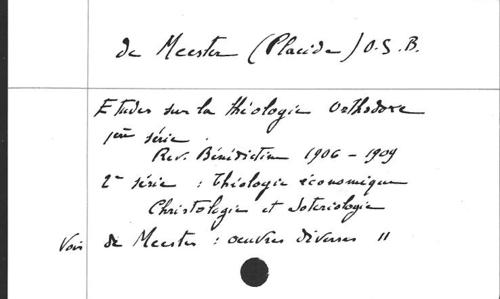 de Meester (Placide) O.S.B.
Etudes sur la théologie Orthodoxe
1ère série.
Rev. Bénédictine 1906 - 1909
2e série : Théologie économique
Christologie et Soteriologie
Voir de Meester : oeuvres diverses II